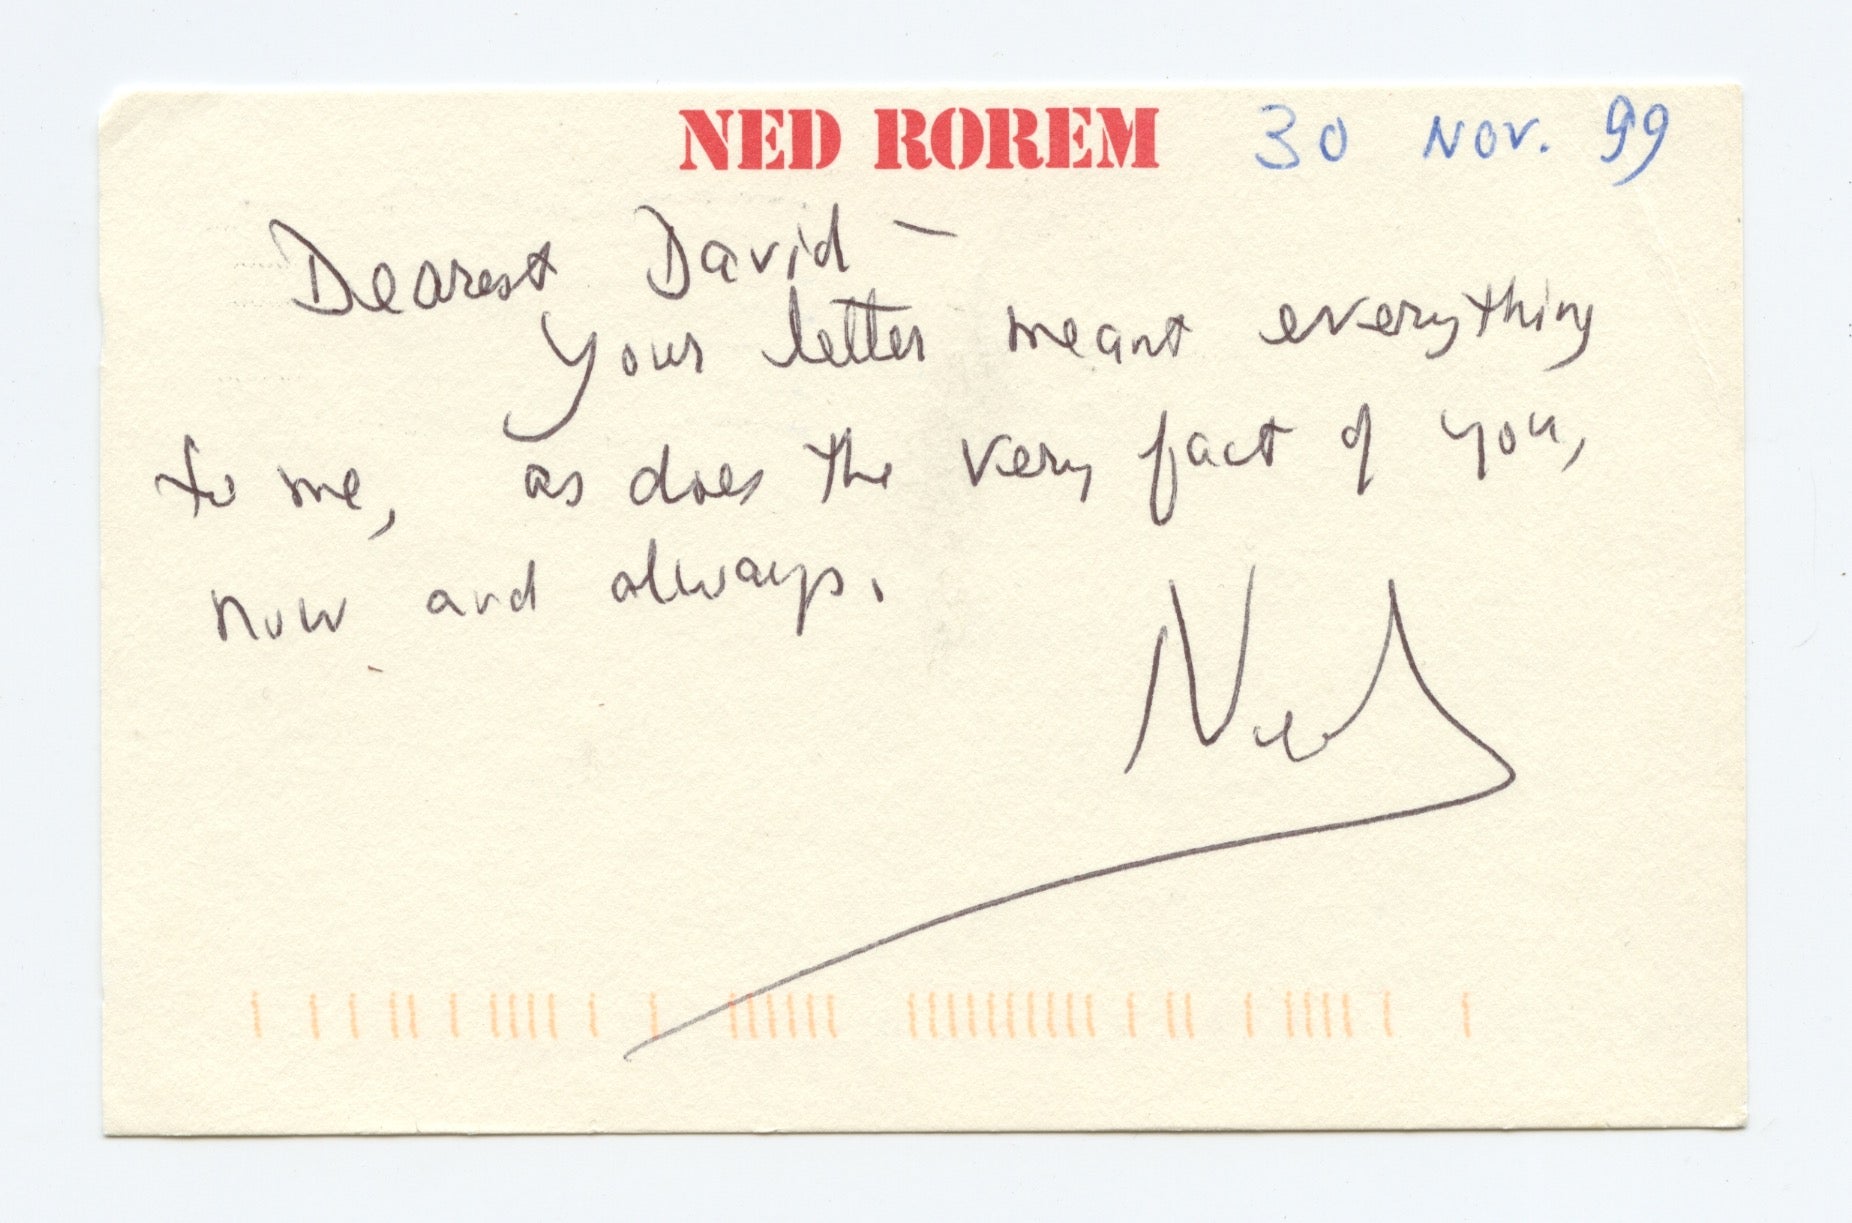 NED ROREM 30 Nov. 99
Dearest David —
Your letter meant everything
to me, as does the very fact of you,
now and always.
Ned